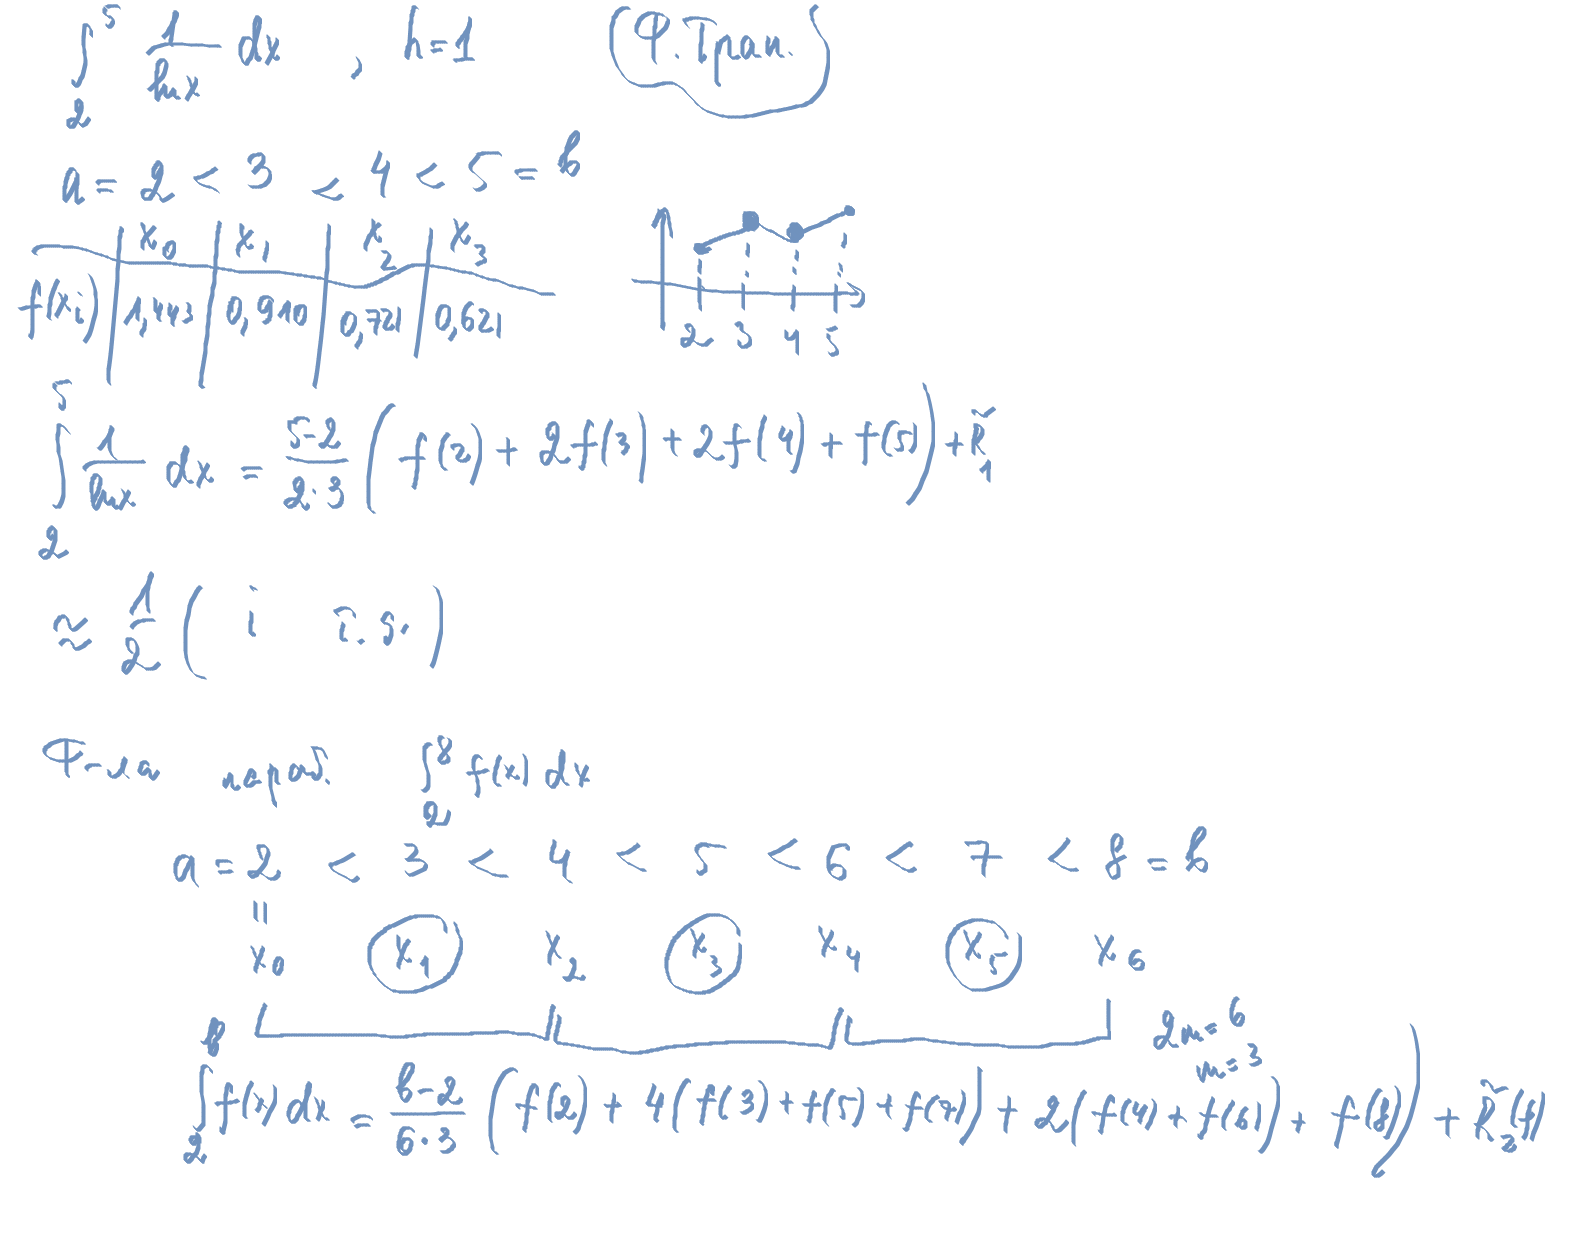 ∫₂⁵ 1/ln x dx , h=1 (Ф. Трап.)
a = 2 < 3 < 4 < 5 = b
x₀ x₁ x₂ x₃
f(xᵢ) 1,443 0,910 0,721 0,621
2 3 4 5
∫₂⁵ 1/ln x dx = (5-2)/(2·3) ( f(2) + 2f(3) + 2f(4) + f(5) ) + R̃₁
≈ 1/2 ( і т.д. )
Ф-ла параб. ∫₂⁸ f(x) dx
a = 2 < 3 < 4 < 5 < 6 < 7 < 8 = b
||
x₀ x₁ x₂ x₃ x₄ x₅ x₆
2m = 6
m = 3
∫₂ᵇ f(x) dx = (b-2)/(6·3) ( f(2) + 4(f(3) + f(5) + f(7)) + 2(f(4) + f(6)) + f(8) ) + R̃₂(f)